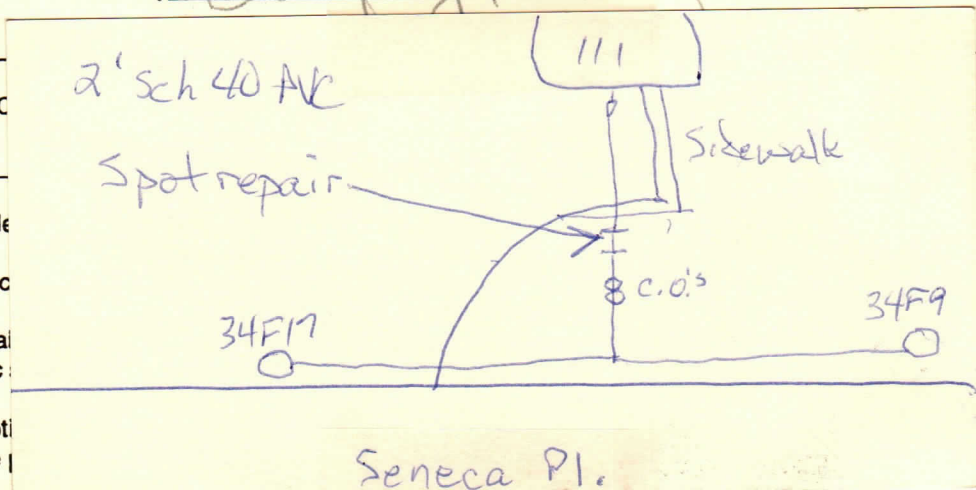 111
2' Sch 40 PVC
Sidewalk
Spot repair
8 C.O.'s
34F17
34F9
Seneca Pl.